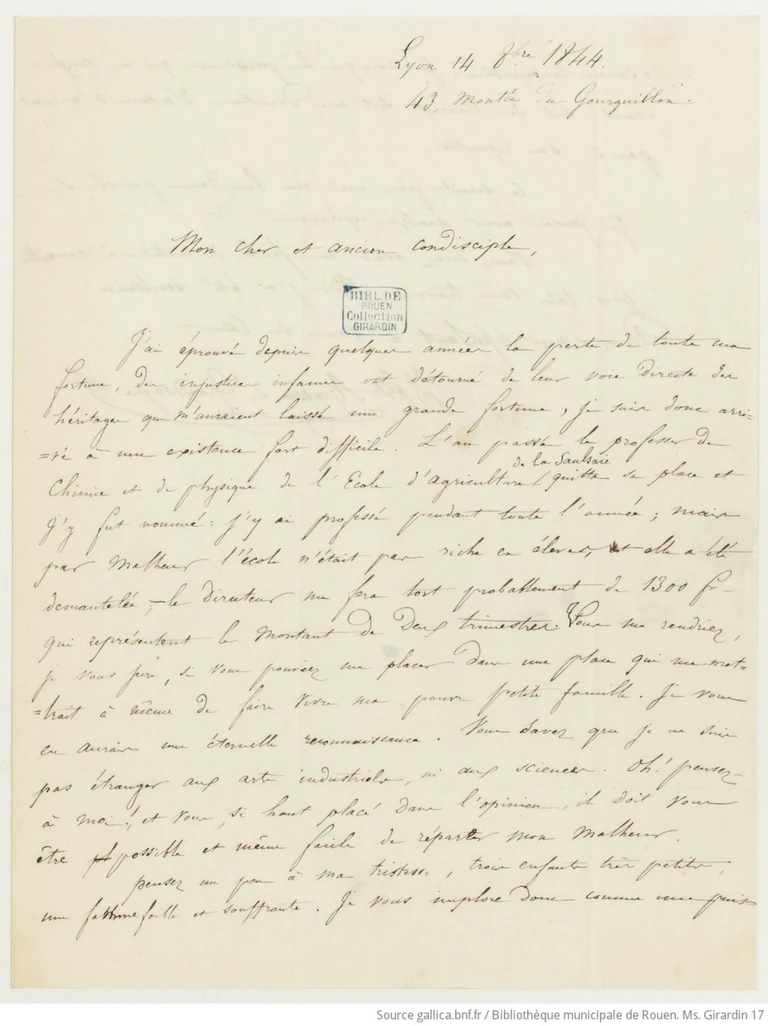 Lyon 14 8bre 1844.
43, Montée du Gourguillon.
Mon cher et ancien condisciple,
BIBL. DE
ROUEN
Collection
GIRARDIN
J'ai éprouvé depuis quelques années la perte de toute ma
fortune, des injustices infames ont détourné de leur voie directe des
héritages qui m'auraient laissé une grande fortune, je suis donc arri-
=vé à une existence fort difficile. L'an passé le professeur de
Chimie et de physique de l'Ecole d'Agriculture de la Saulsaie quitta sa place et
j'y fut nommé : j'y ai professé pendant toute l'année ; mais
par malheur l'école n'était pas riche en élèves, et elle a été
demantelée, - le Directeur me fera tort probablement de 1300 fr-
qui représentent le montant de Deux trimestres. Vous me rendriez,
je vous jure, si vous pouviez me placer dans une place qui me met-
=trait à même de faire vivre ma pauvre petite famille. Je vous
en aurais une éternelle reconnaissance. Vous savez que je ne suis
pas étranger aux arts industriels, ni aux sciences. Oh! pensez-
à moi!, et vous, si haut placé dans l'opinion, il doit vous
être possible et même facile de réparer mon malheur.
pensez un peu à ma tristesse, trois enfants très petits,
une femme faible et souffrante. Je vous implore donc comme une puis-
Source gallica.bnf.fr / Bibliothèque municipale de Rouen. Ms. Girardin 17